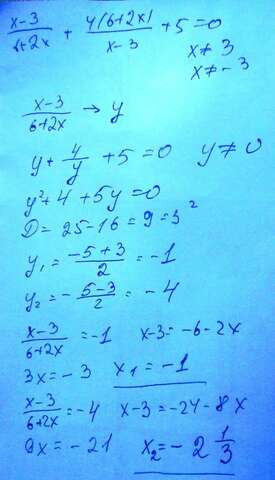 x-3/6+2x + 4(6+2x)/x-3 + 5 = 0
x ≠ 3
x ≠ -3
x-3/6+2x → y
y + 4/y + 5 = 0 y ≠ 0
y² + 4 + 5y = 0
D = 25-16 = 9 = 3²
y₁ = -5+3/2 = -1
y₂ = -5-3/2 = -4
x-3/6+2x = -1 x-3 = -6-2x
3x = -3 x₁ = -1
x-3/6+2x = -4 x-3 = -24-8x
9x = -21 x₂ = -2 1/3